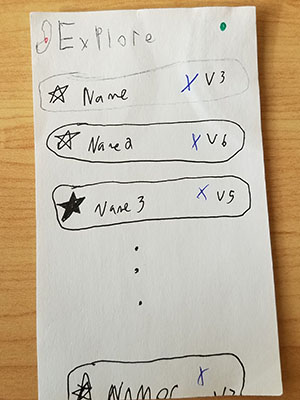 Explore
Name X V3
Name 2 X V6
Name 3 X V5